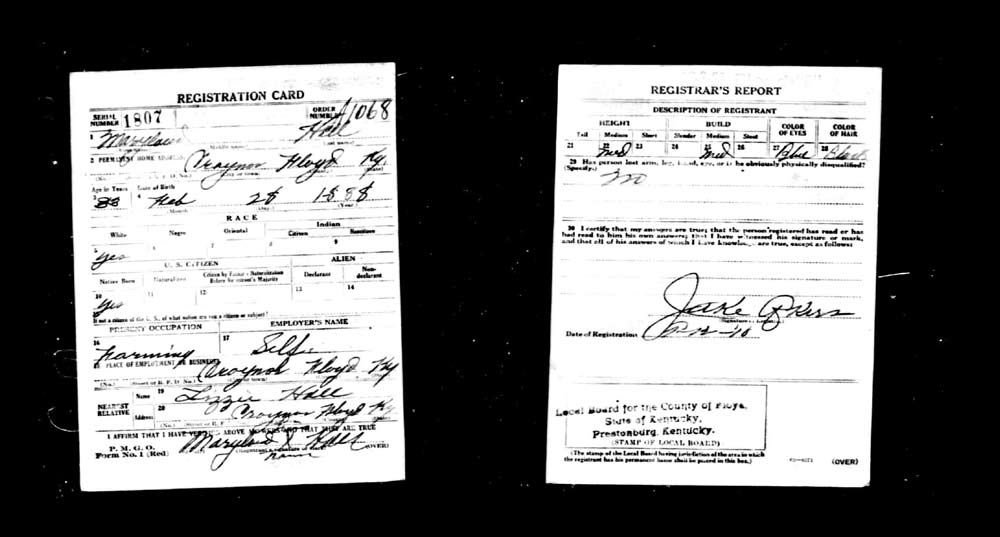 REGISTRATION CARD
SERIAL NUMBER 1807 ORDER NUMBER A1068
1 Maryland Hall
(Middle name) (Last name)
2 PERMANENT HOME ADDRESS Craynor Floyd Ky.
(No.) (City or town) (State)
Age in Years Date of Birth
3 38 4 Feb 28 1888
(Month) (Day) (Year)
RACE
White Negro Oriental Indian
Citizen Noncitizen
5 6 7 8 9
Yes
U. S. CITIZEN ALIEN
Native Born Naturalized Citizen by Father's Naturalization Before Registrant's Majority Declarant Non-declarant
10 11 12 13 14
Yes
If not a citizen of the U. S., of what nation are you a citizen or subject?
PRESENT OCCUPATION EMPLOYER'S NAME
16 Farming 17 Self
18 PLACE OF EMPLOYMENT OR BUSINESS Craynor Floyd Ky
(No.) (Street or R. F. D. No.) (City or town)
NEAREST RELATIVE Name 19 Lizzie Hall
Address 20 Craynor Floyd Ky
(No.) (Street or R. F.
I AFFIRM THAT I HAVE VERIFIED ABOVE ANSWERS AND THAT THEY ARE TRUE
P. M. G. O.
Form No. 1 (Red) Maryland X Hall
(Registrant's signature or mark) (OVER)
REGISTRAR'S REPORT
DESCRIPTION OF REGISTRANT
HEIGHT BUILD COLOR OF EYES COLOR OF HAIR
Tall Medium Short Slender Medium Stout
21 22 Med 23 24 25 Med 26 27 Blue 28 Black
29 Has person lost arm, leg, hand, eye, or is he obviously physically disqualified?
(Specify.)
no
30 I certify that my answers are true; that the person registered has read or has
had read to him his own answers; that I have witnessed his signature or mark,
and that all of his answers of which I have knowledge are true, except as follows:
Jake Akers
(Signature of Registrar)
Date of Registration
Local Board for the County of Floyd,
State of Kentucky,
Prestonburg, Kentucky.
(STAMP OF LOCAL BOARD)
(The stamp of the Local Board having jurisdiction of the area in which
the registrant has his permanent home shall be placed in this box.)
(OVER)